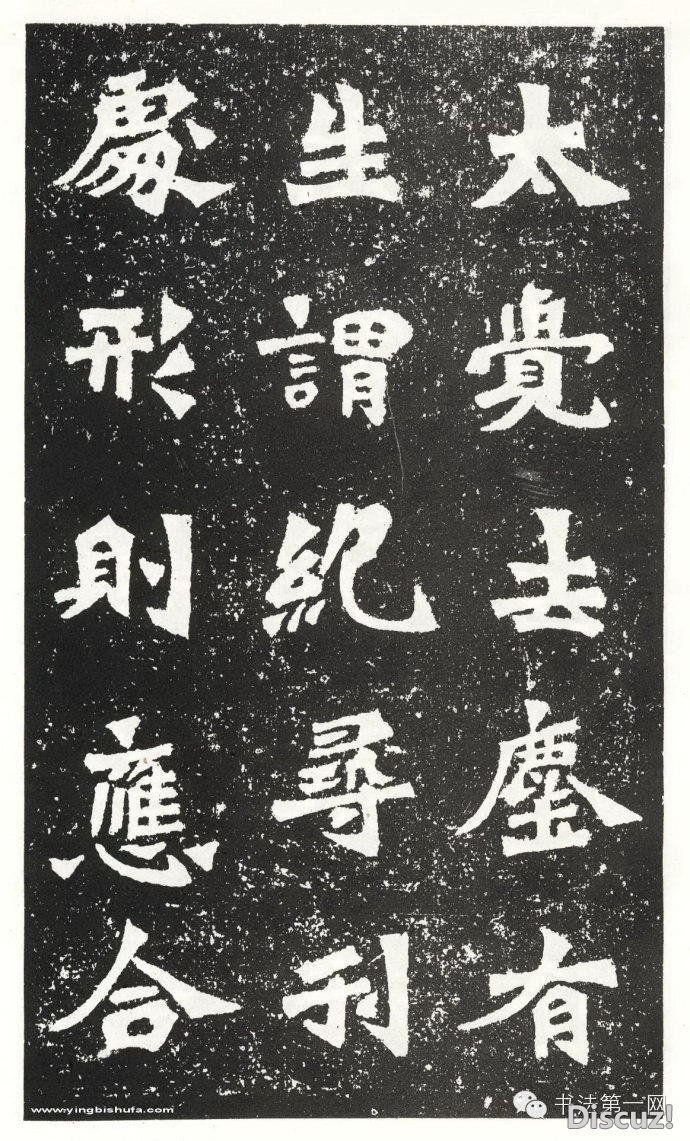 太覺去塵有
生謂紀尋刊
處形則應合
www.yingbishufa.com
书法第一网
Discuz!